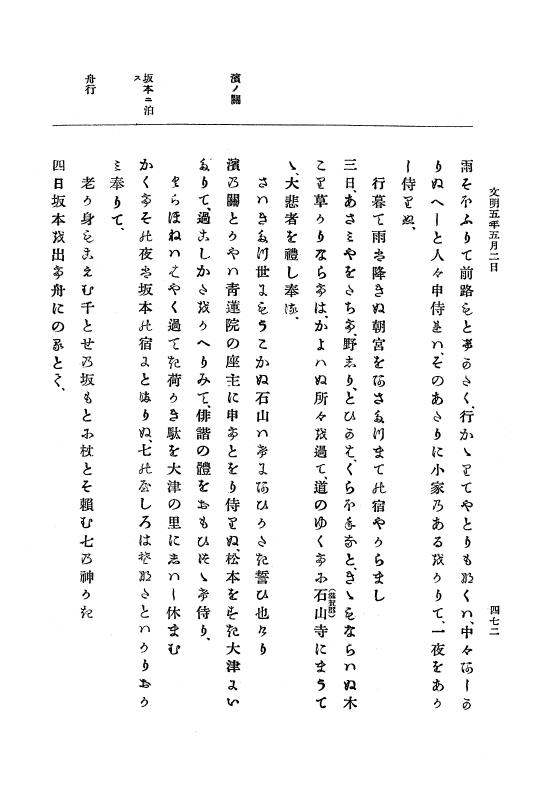 文明五年五月二日
四七二
雨そほふりて前路もとをさく、行かゝりてやとりもなくハ、中々あしか
りぬへしと人々申侍れハ、そのあたりに小家のあるをかりて、一夜をあか
し侍りぬ、
行暮て雨は降きぬ朝宮をあさたつまての宿やからまし
三日、あさミやをたちて、野しり、とひかた、くらほねなと、きゝもならハぬ木
こり草かりならては、かよハぬ所々を過て、道のゆくてに石山寺(滋賀郡)にまうて
ゝ、大悲者を禮し奉る、
さハきたつ世にもうこかぬ石山ハけにあひかたき誓ひ也けり
濱ノ關
濱の關とかやハ青蓮院の座主に申てとをり侍りぬ、松本をすき大津にい
たりて、過こしかたをかへりみて、俳諧の體をおもひつゝけ侍り、
くらほねハはやく過てき荷かき駄を大津の里にしハし休まむ
坂本ニ泊ス
かくてその夜は坂本の宿にとまりぬ、七のやしろはそなたとハかりおか
ミ奉りて、
舟行
老か身をこえむ千とせの坂もとに杖とそ頼む七の神かき
四日坂本を出て舟にのるとて、